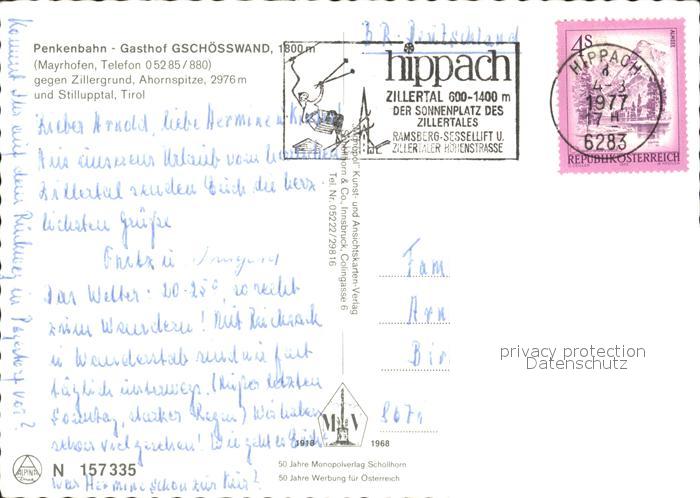 Penkenbahn - Gasthof GSCHÖSSWAND, 1800 m
(Mayrhofen, Telefon 0 52 85 / 880)
gegen Zillergrund, Ahornspitze, 2976 m
und Stillupptal, Tirol
BR. Deutschland
hippach
ZILLERTAL 600-1400 m
DER SONNENPLATZ DES
ZILLERTALES
RAMSBERG-SESSELLIFT U.
ZILLERTALER HÖHENSTRASSE
4S
ALMSEE
REPUBLIK ÖSTERREICH
HIPPACH
1977
6283
Lieber Arnold, liebe Hermine u.
Aus unserem Urlaub vom
Zillertal senden Euch die herz-
lichsten Grüße
Fritz u. Irmgard
Das Wetter: 20-25°, so recht
zum Wandern! Mit Rucksack
u. Wanderstab sind wir fast
täglich unterwegs. (Außer letzten
Sonntag, starker Regen) Wir haben
schon viel gesehen! Wie geht es Euch?
War Hermine schon zur Kur?
Kommt Ihr auf dem Rückweg in vor?
"Monopol" Kunst- und Ansichtskarten-Verlag
Schöllhorn & Co., Innsbruck, Colingasse 6
Tel. Nr. 05222/29816
Fam
Arn
Bir
867
privacy protection
Datenschutz
M V
1918 1968
50 Jahre Monopolverlag Schöllhorn
50 Jahre Werbung für Österreich
ALPINA
N 157335